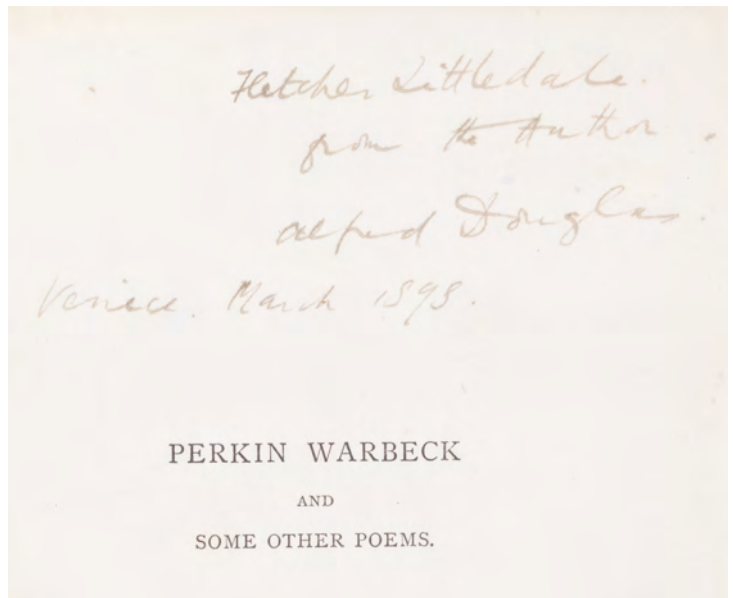 Fletcher Littledale.
from the Author.
Alfred Douglas.
Venice. March 1898.
PERKIN WARBECK
AND
SOME OTHER POEMS.